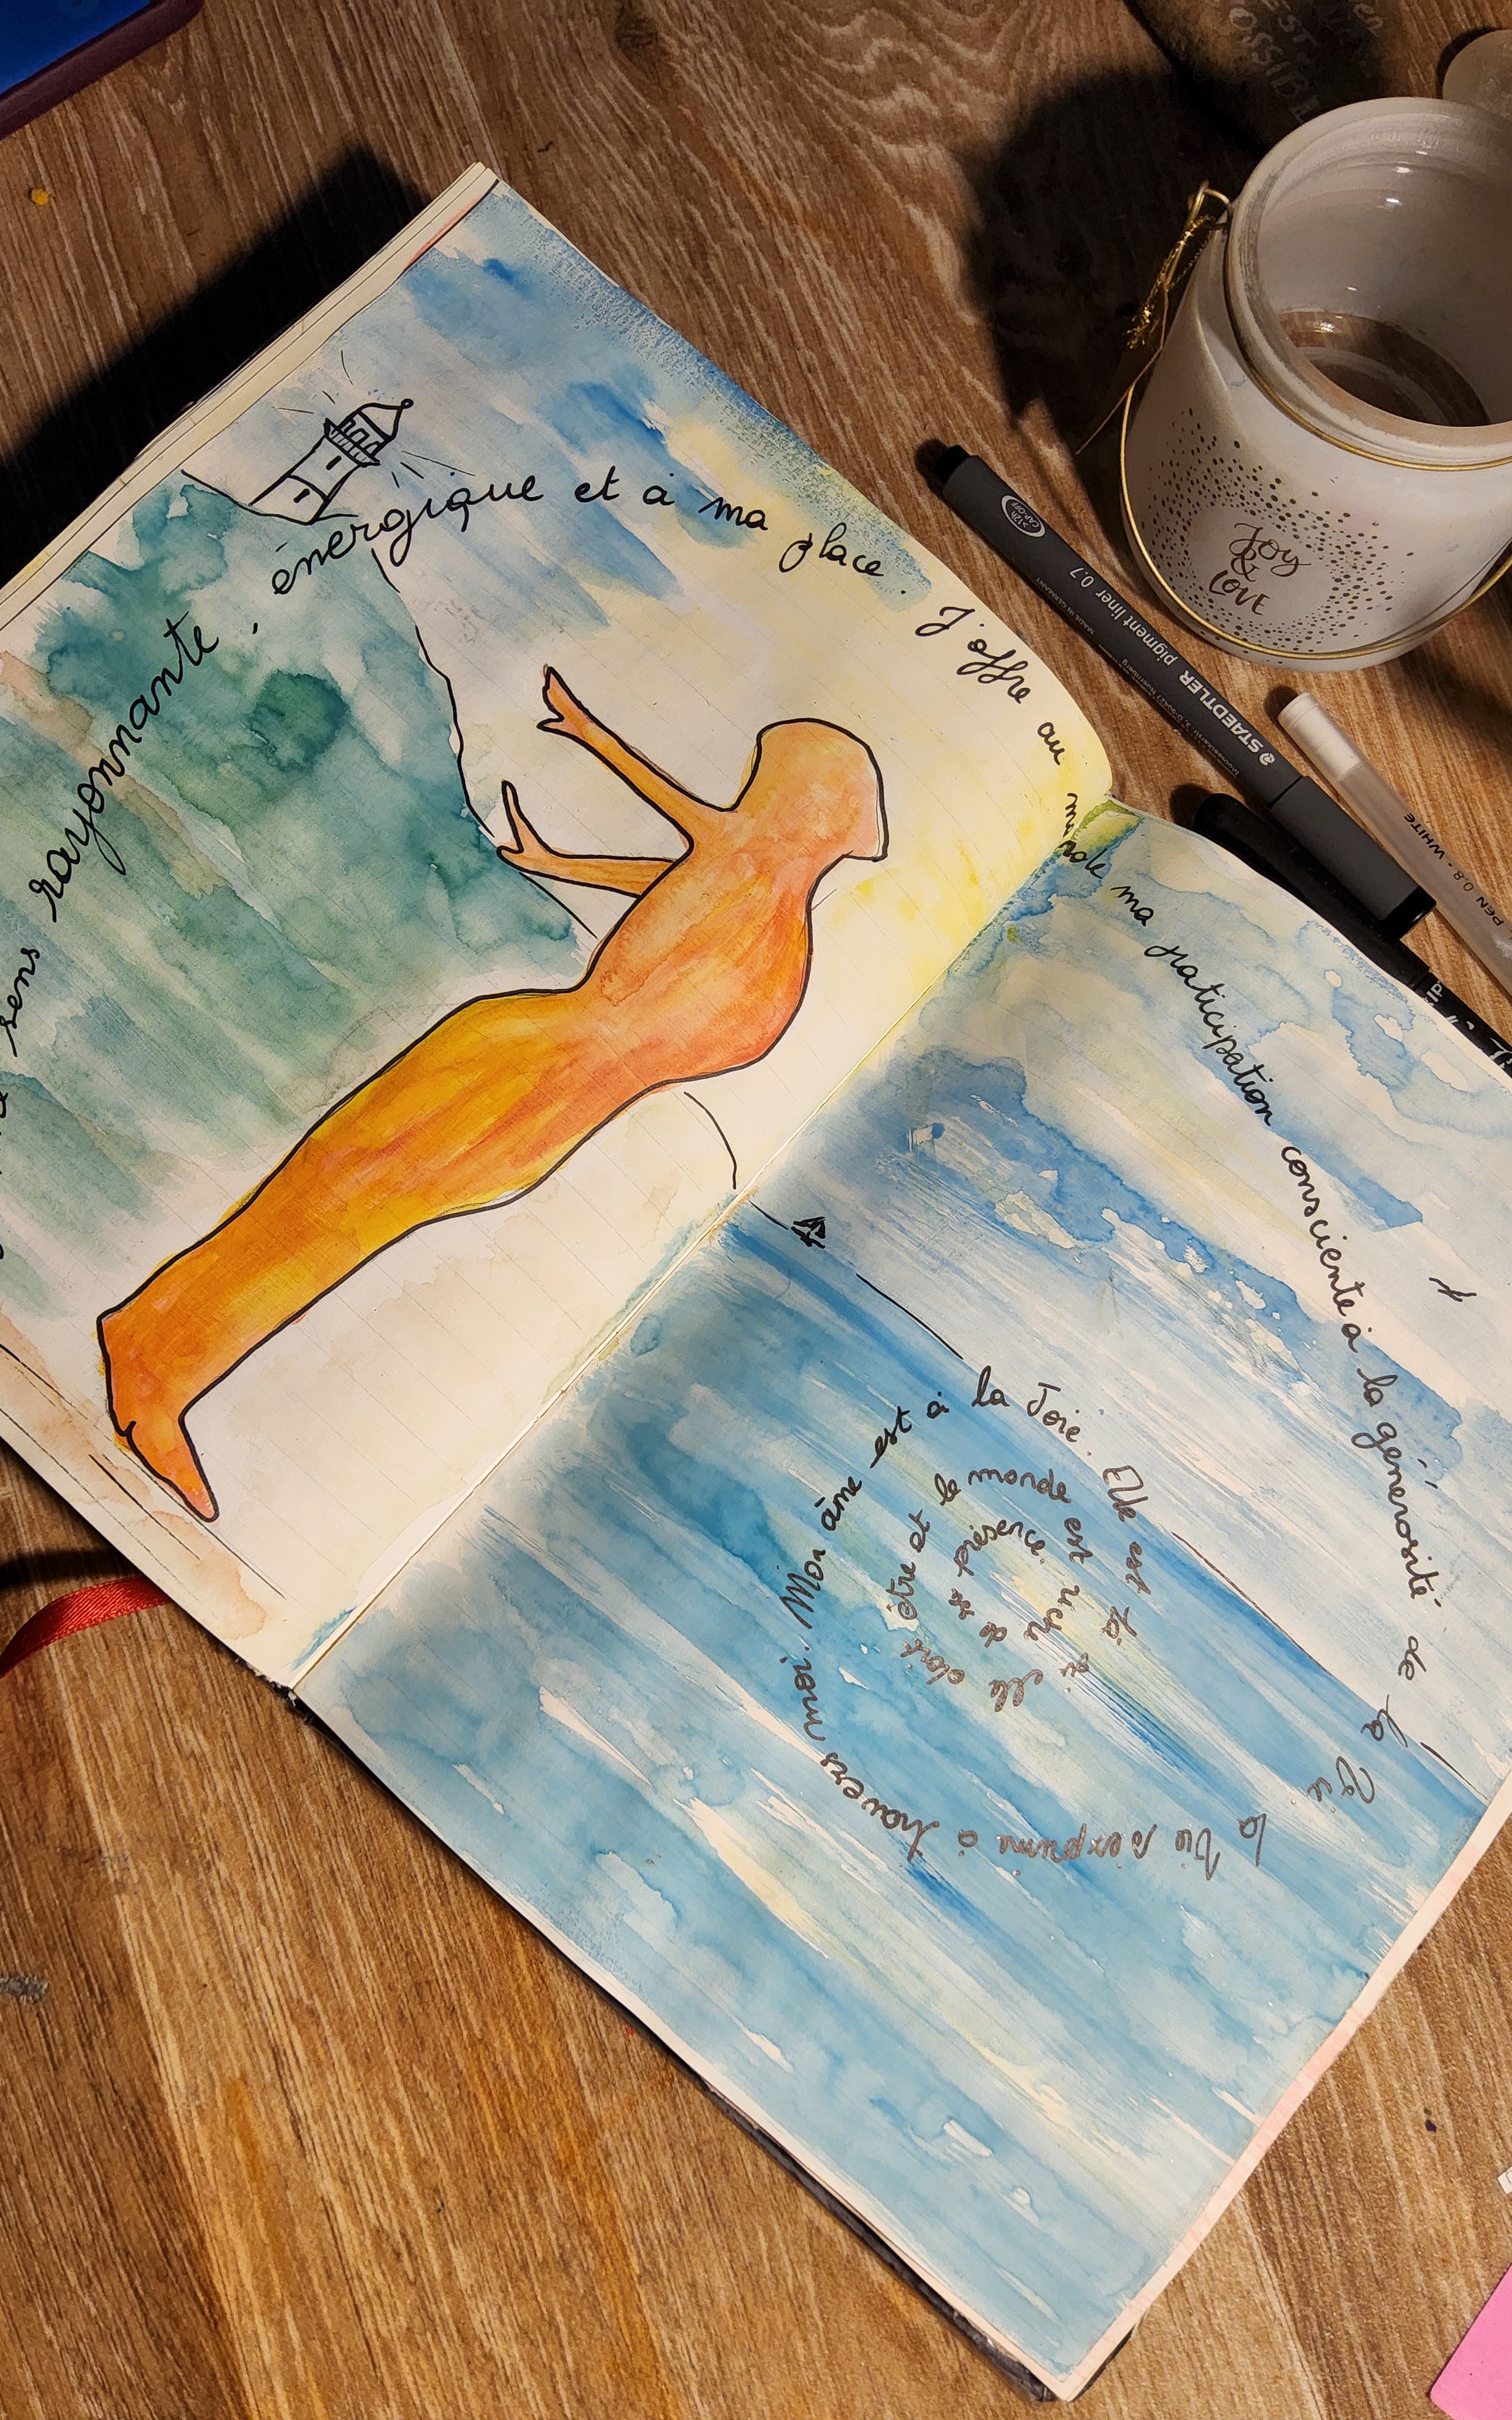 sens rayonnante,
énergique et à ma place.
J'offre au monde ma praticipation consciente à la générosité de la Vie
la Vie s'exprime à travers moi. Mon âme est à la Joie. Elle est là où elle doit être et le monde est riche de sa présence.
Joy
&
LOVE
STAEDTLER pigment liner 0.7
MADE IN GERMANY
CAP-OFF
PEN 0.8 - WHITE
EST